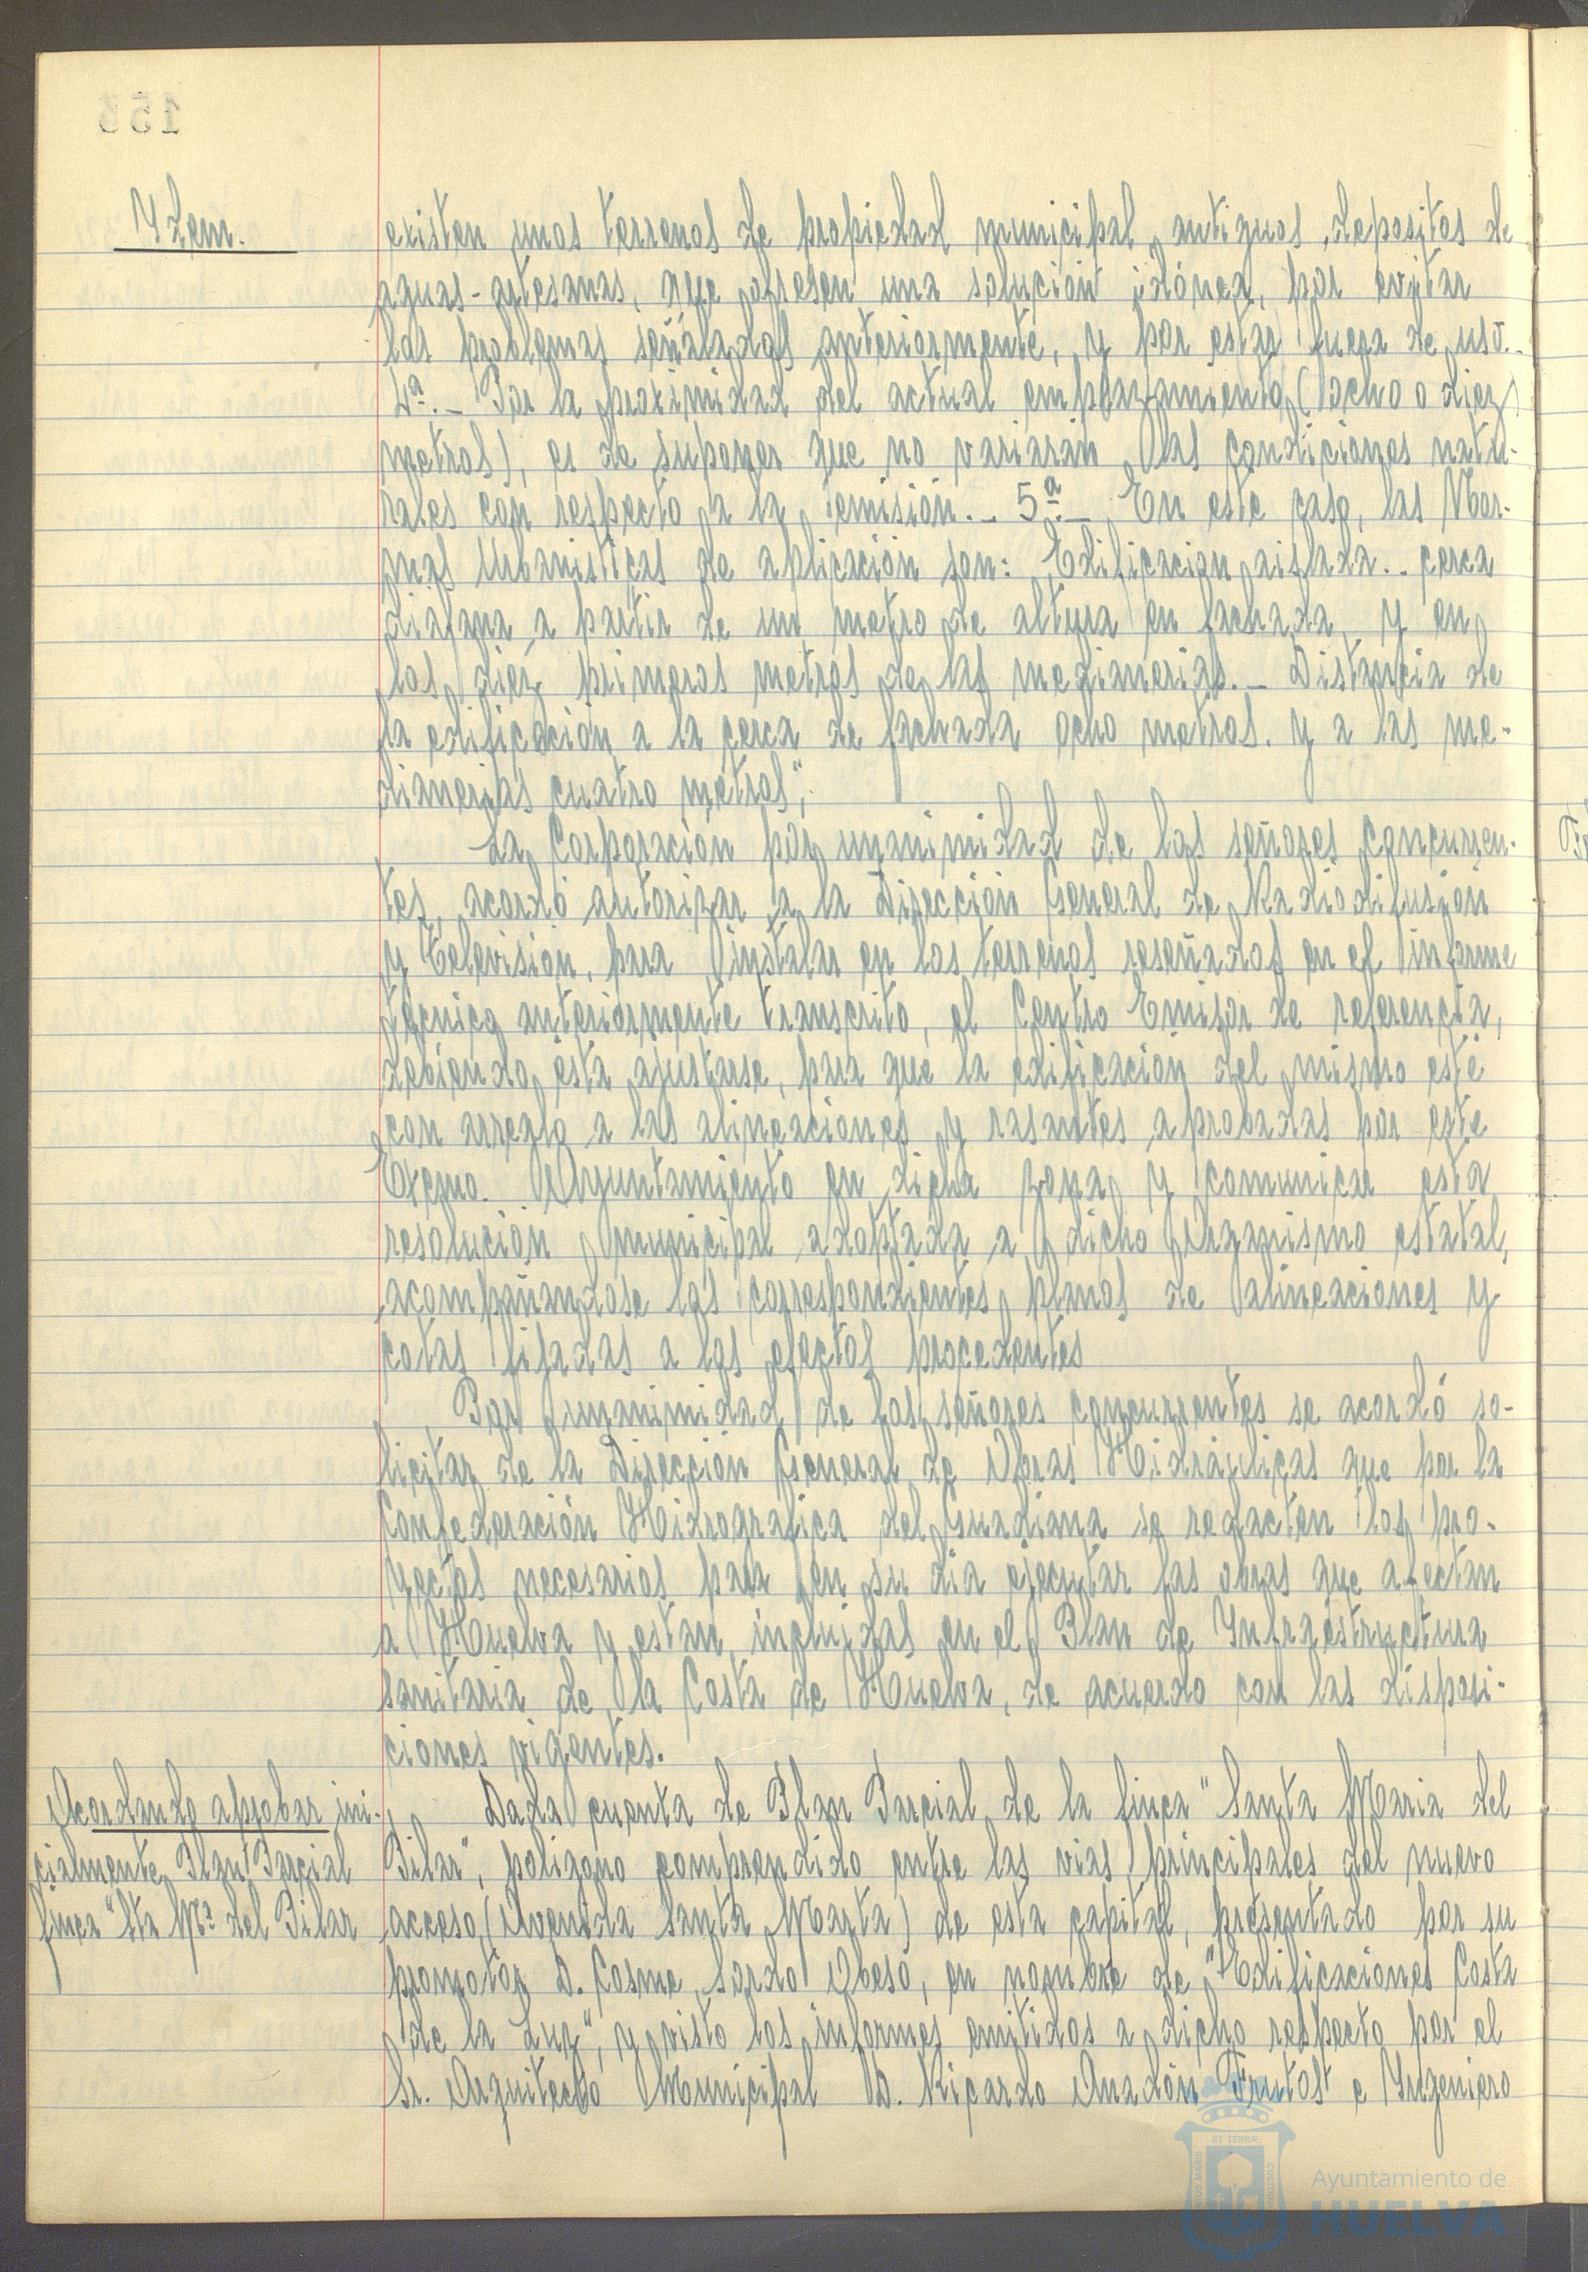 Ytem.
existen unos terrenos de propiedad municipal, antiguos depositos de
aguas-artesanas, que ofrecen una solución idónea, por evitar
los problemas señalados anteriormente, y por estar fuera de uso.-
4ª.- Por la proximidad del actual emplazamiento (ocho o diez
metros), es de suponer que no variarán las condiciones natu-
rales con respecto a la emisión.- 5ª.- En este caso, las Nor-
mas Urbanisticas de aplicación son: Edificacion aislada.- cerca
diafana a partir de un metro de altura en fachada y en
los diez primeros metros de las medianerias.- Distancia de
la edificación a la cerca de fachada ocho metros. y a las me-
dianerias cuatro metros",
La Corporación por unanimidad de los señores concurren-
tes, acordó autorizar a la Dirección General de Radiodifusión
y Televisión, para instalar en los terrenos reseñados en el informe
técnico anteriormente transcrito, el Centro Emisor de referencia,
debiendo ésta ajustarse, para que la edificación del mismo esté
con arreglo a las alineaciones y rasantes aprobadas por este
Excmo. Ayuntamiento en dicha zona, y comunicar esta
resolución municipal adoptada a dicho Organismo estatal,
acompañandose los correspondientes planos de alineaciones y
cotas fijadas a los efectos procedentes
Por unanimidad de los señores concurrentes se acordó so-
licitar de la Dirección General de Obras Hidráulicas que por la
Confederación Hidrografica del Guadiana se redacten los pro-
yectos necesarios para en su dia ejecutar las obras que afectan
a Huelva y estan incluidas en el Plan de Infraestructura
sanitaria de la Costa de Huelva, de acuerdo con las disposi-
ciones vigentes.
Acordando aprobar ini-
cialmente Plan Parcial
finca "Sta Mª del Pilar
Dada cuenta de Plan Parcial de la finca "Santa Maria del
Pilar", poligono comprendido entre las vias principales del nuevo
acceso (Avenida Santa Marta) de esta capital, presentado por su
promotor D. Cosme Sordo Obeso, en nombre de "Edificaciones Costa
de la Luz", y visto los informes emitidos a dicho respecto por el
Sr. Arquitecto Municipal D. Ricardo Anadón Frutos e Ingeniero
Ayuntamiento de
HUELVA